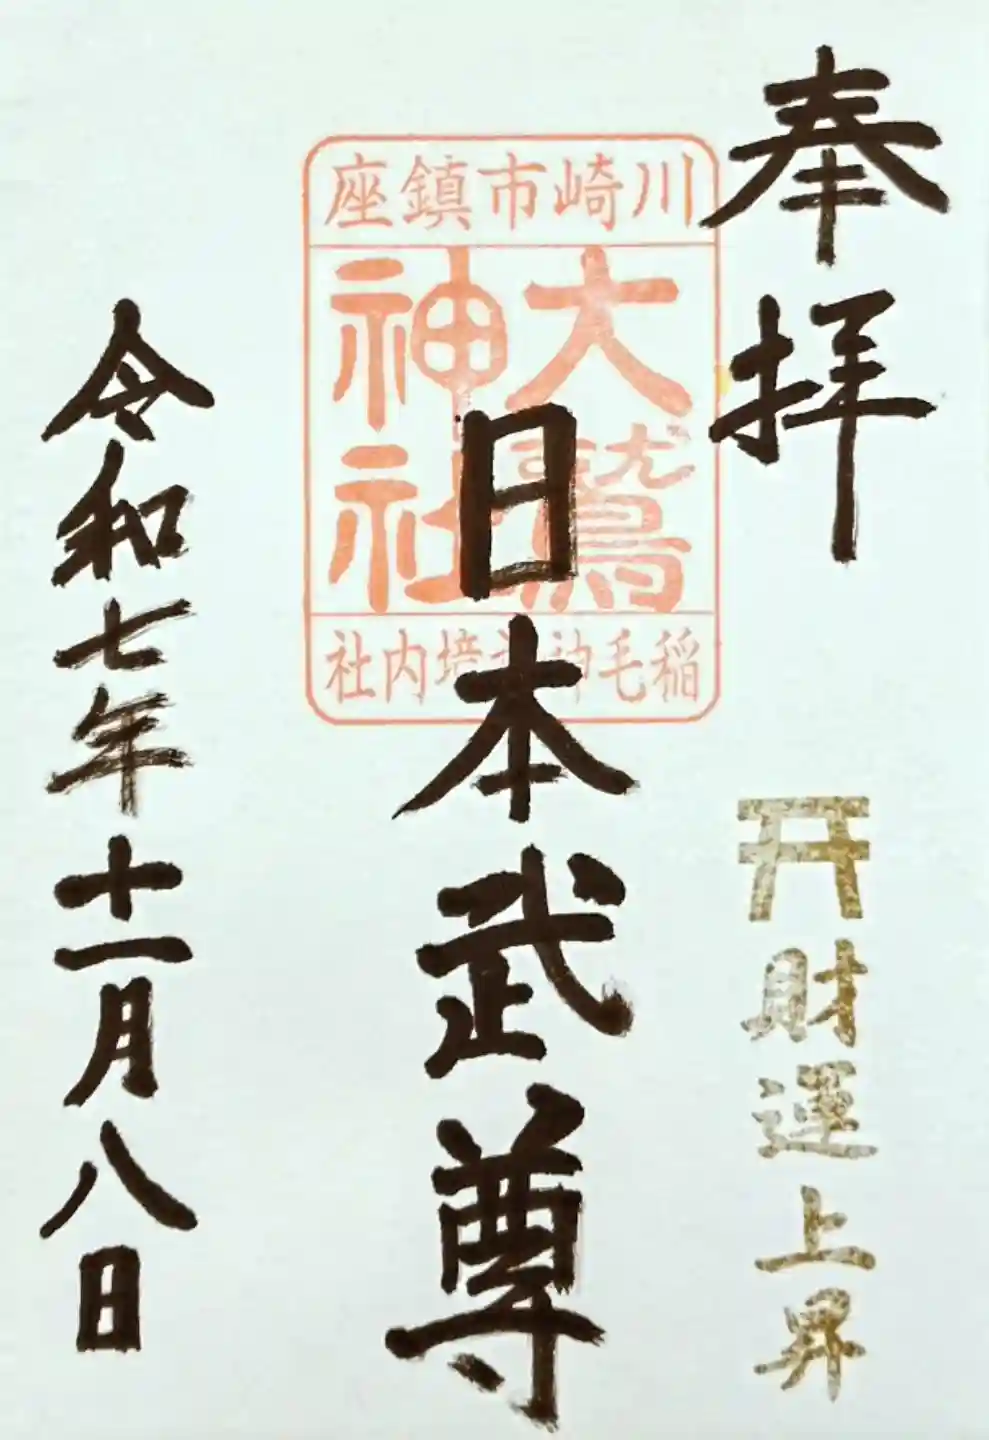 奉拝
財運上昇
川崎市鎮座
大鷲
神社
稲毛神社境内社
日本武尊
令和七年十一月八日